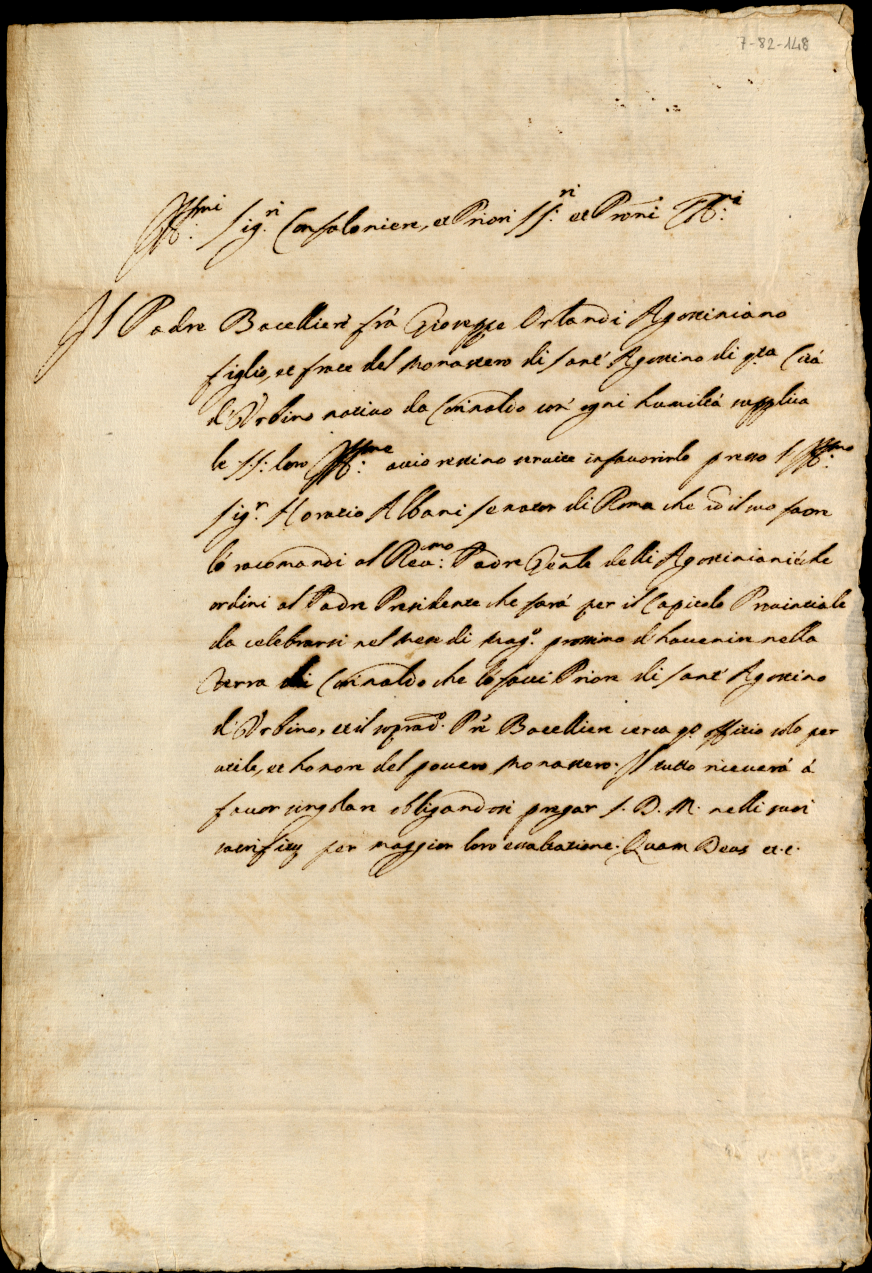 7-82-148
Ill:mi Sig:ri Confaloniere, et Priori SS:ri et Proni
Il Padre Bacellieri frà Gioseppe Orlandi Agostiniano
figlio, et frate del Monastero di Sant' Agostino di q.ta Cità
d'Urbino nativo da Corinaldo con' ogni humiltà supplica
le SS: loro Ill:me acciò restino servite in favorirlo presso l'Ill:mo
Sig.r Horatio Albani Senator di Roma che il suo favore
lo racomandi al Reu:mo Padre Gen̄le delli Agostiniani che
ordini al Padre Presidente che sarà per il Capitolo Provintiale
da celebrarsi nel mese di Mag.o prossimo d'havenire nella
Terra di Corinaldo che lo facci Priore di Sant' Agostino
d'Urbino, et il soprad.o P̄re Bacelliere cerca offitio solo per
utile, et honore del povero Monastero. Il tutto riceverà à
favor singolare obligandosi pregar S. D. M. nelli suoi
sacrifitij per maggior loro essaltatione. Quam Deus et.c.